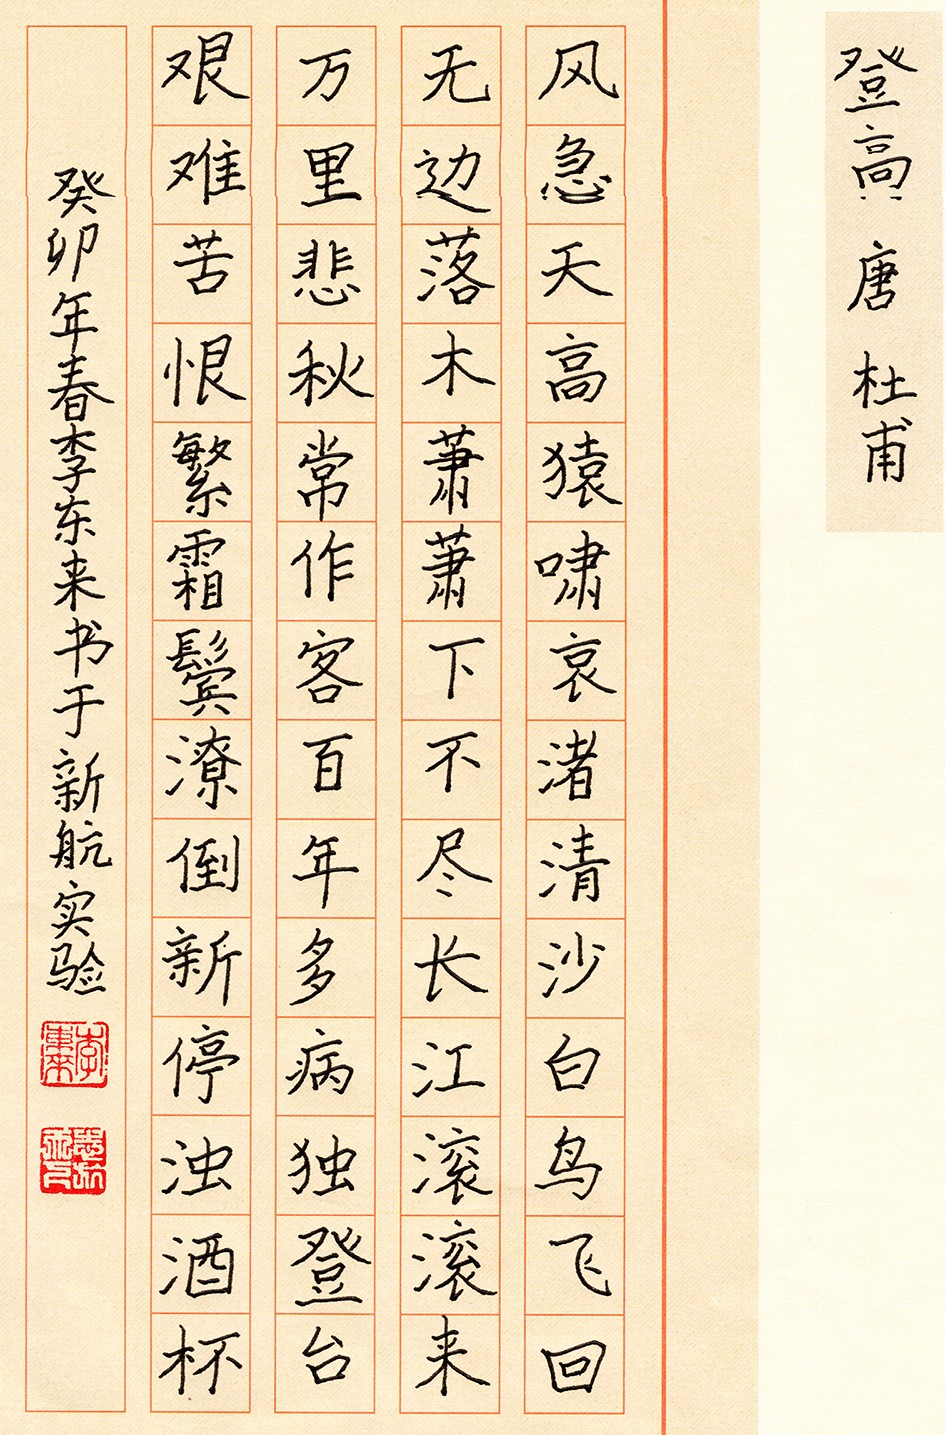 登高 唐 杜甫
风急天高猿啸哀渚清沙白鸟飞回
无边落木萧萧下不尽长江滚滚来
万里悲秋常作客百年多病独登台
艰难苦恨繁霜鬓潦倒新停浊酒杯
癸卯年春李东来书于新航实验
李東來